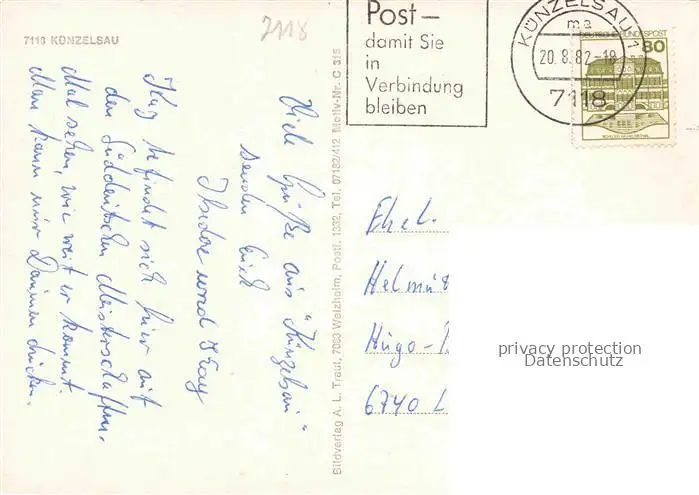 7118 KÜNZELSAU
7118
Viele Grüße aus "Künzelsau"
senden Euch
Isidor und Kay
Kay befindet sich hier auf
den Süddeutschen Meisterschaften.
Mal sehen, wie weit er kommt.
Man kann nur Daumen drücken.
Bildverlag A. L. Traut, 7063 Welzheim, Postf. 1332, Tel. 07182/412 Motiv-Nr. C 315
Post–
damit Sie
in
Verbindung
bleiben
KÜNZELSAU 1
ma
20.8.82-18
7118
DEUTSCHE BUNDESPOST
80
Ehel.
Helmut
Hugo-
6740 L
privacy protection
Datenschutz